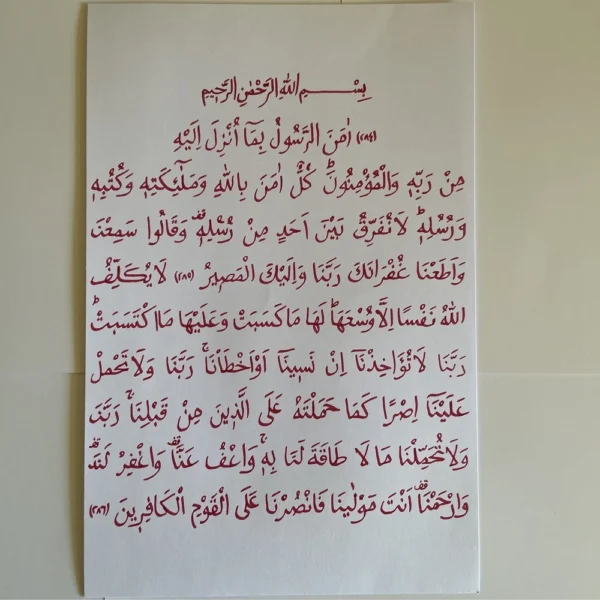 بِسْــــــمِ اللّٰهِ الرَّحْمٰنِ الرَّحٖيمِ
(٢٨٤) اٰمَنَ الرَّسُولُ بِمَٓا اُنْزِلَ اِلَيْهِ
مِنْ رَبِّهٖ وَالْمُؤْمِنُونَۜ كُلٌّ اٰمَنَ بِاللّٰهِ وَمَلٰٓئِكَتِهٖ وَكُتُبِهٖ
وَرُسُلِهٖۜ لَانُفَرِّقُ بَيْنَ اَحَدٍ مِنْ رُسُلِهٖࣞ وَقَالُوا سَمِعْنَا
وَاَطَعْنَا غُفْرَانَكَ رَبَّنَا وَاِلَيْكَ الْمَصٖيرُ (٢٨٥) لَا يُكَلِّفُ
اللّٰهُ نَفْسًا اِلَّا وُسْعَهَاۜ لَهَا مَا كَسَبَتْ وَعَلَيْهَا مَا اكْتَسَبَتْۜ
رَبَّنَا لَا تُؤَاخِذْنَٓا اِنْ نَسٖينَٓا اَوْ اَخْطَاْنَاۚ رَبَّنَا وَلَا تَحْمِلْ
عَلَيْنَٓا اِصْرًا كَمَا حَمَلْتَهُ عَلَى الَّذٖينَ مِنْ قَبْلِنَاۚ رَبَّنَا
وَلَا تُحَمِّلْنَا مَا لَا طَاقَةَ لَنَا بِهٖۚ وَاعْفُ عَنَّاࣞ وَاغْفِرْ لَنَاࣞ
وَارْحَمْنَاࣞ اَنْتَ مَوْلٰينَا فَانْصُرْنَا عَلَى الْقَوْمِ الْكَافِرٖينَ (٢٨٦)